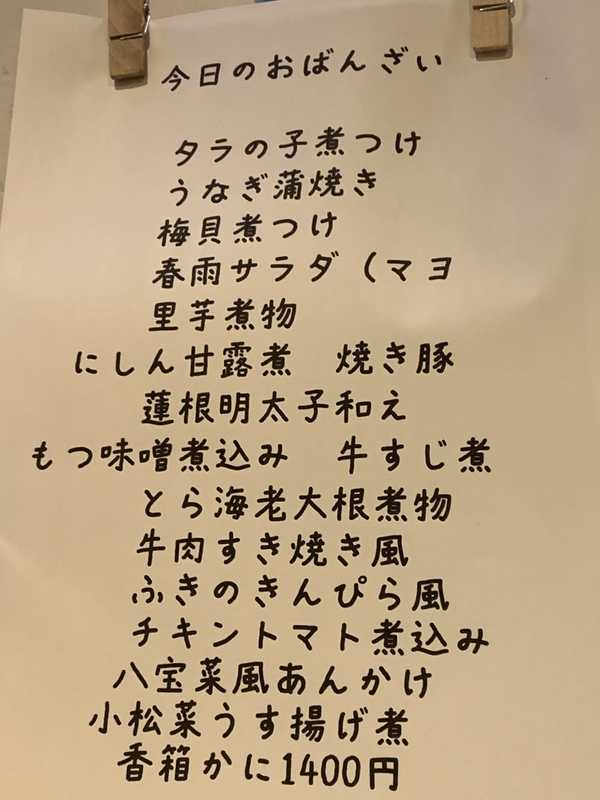 今日のおばんざい
タラの子煮つけ
うなぎ蒲焼き
梅貝煮つけ
春雨サラダ（マヨ
里芋煮物
にしん甘露煮　焼き豚
蓮根明太子和え
もつ味噌煮込み　牛すじ煮
とら海老大根煮物
牛肉すき焼き風
ふきのきんぴら風
チキントマト煮込み
八宝菜風あんかけ
小松菜うす揚げ煮
香箱かに1400円